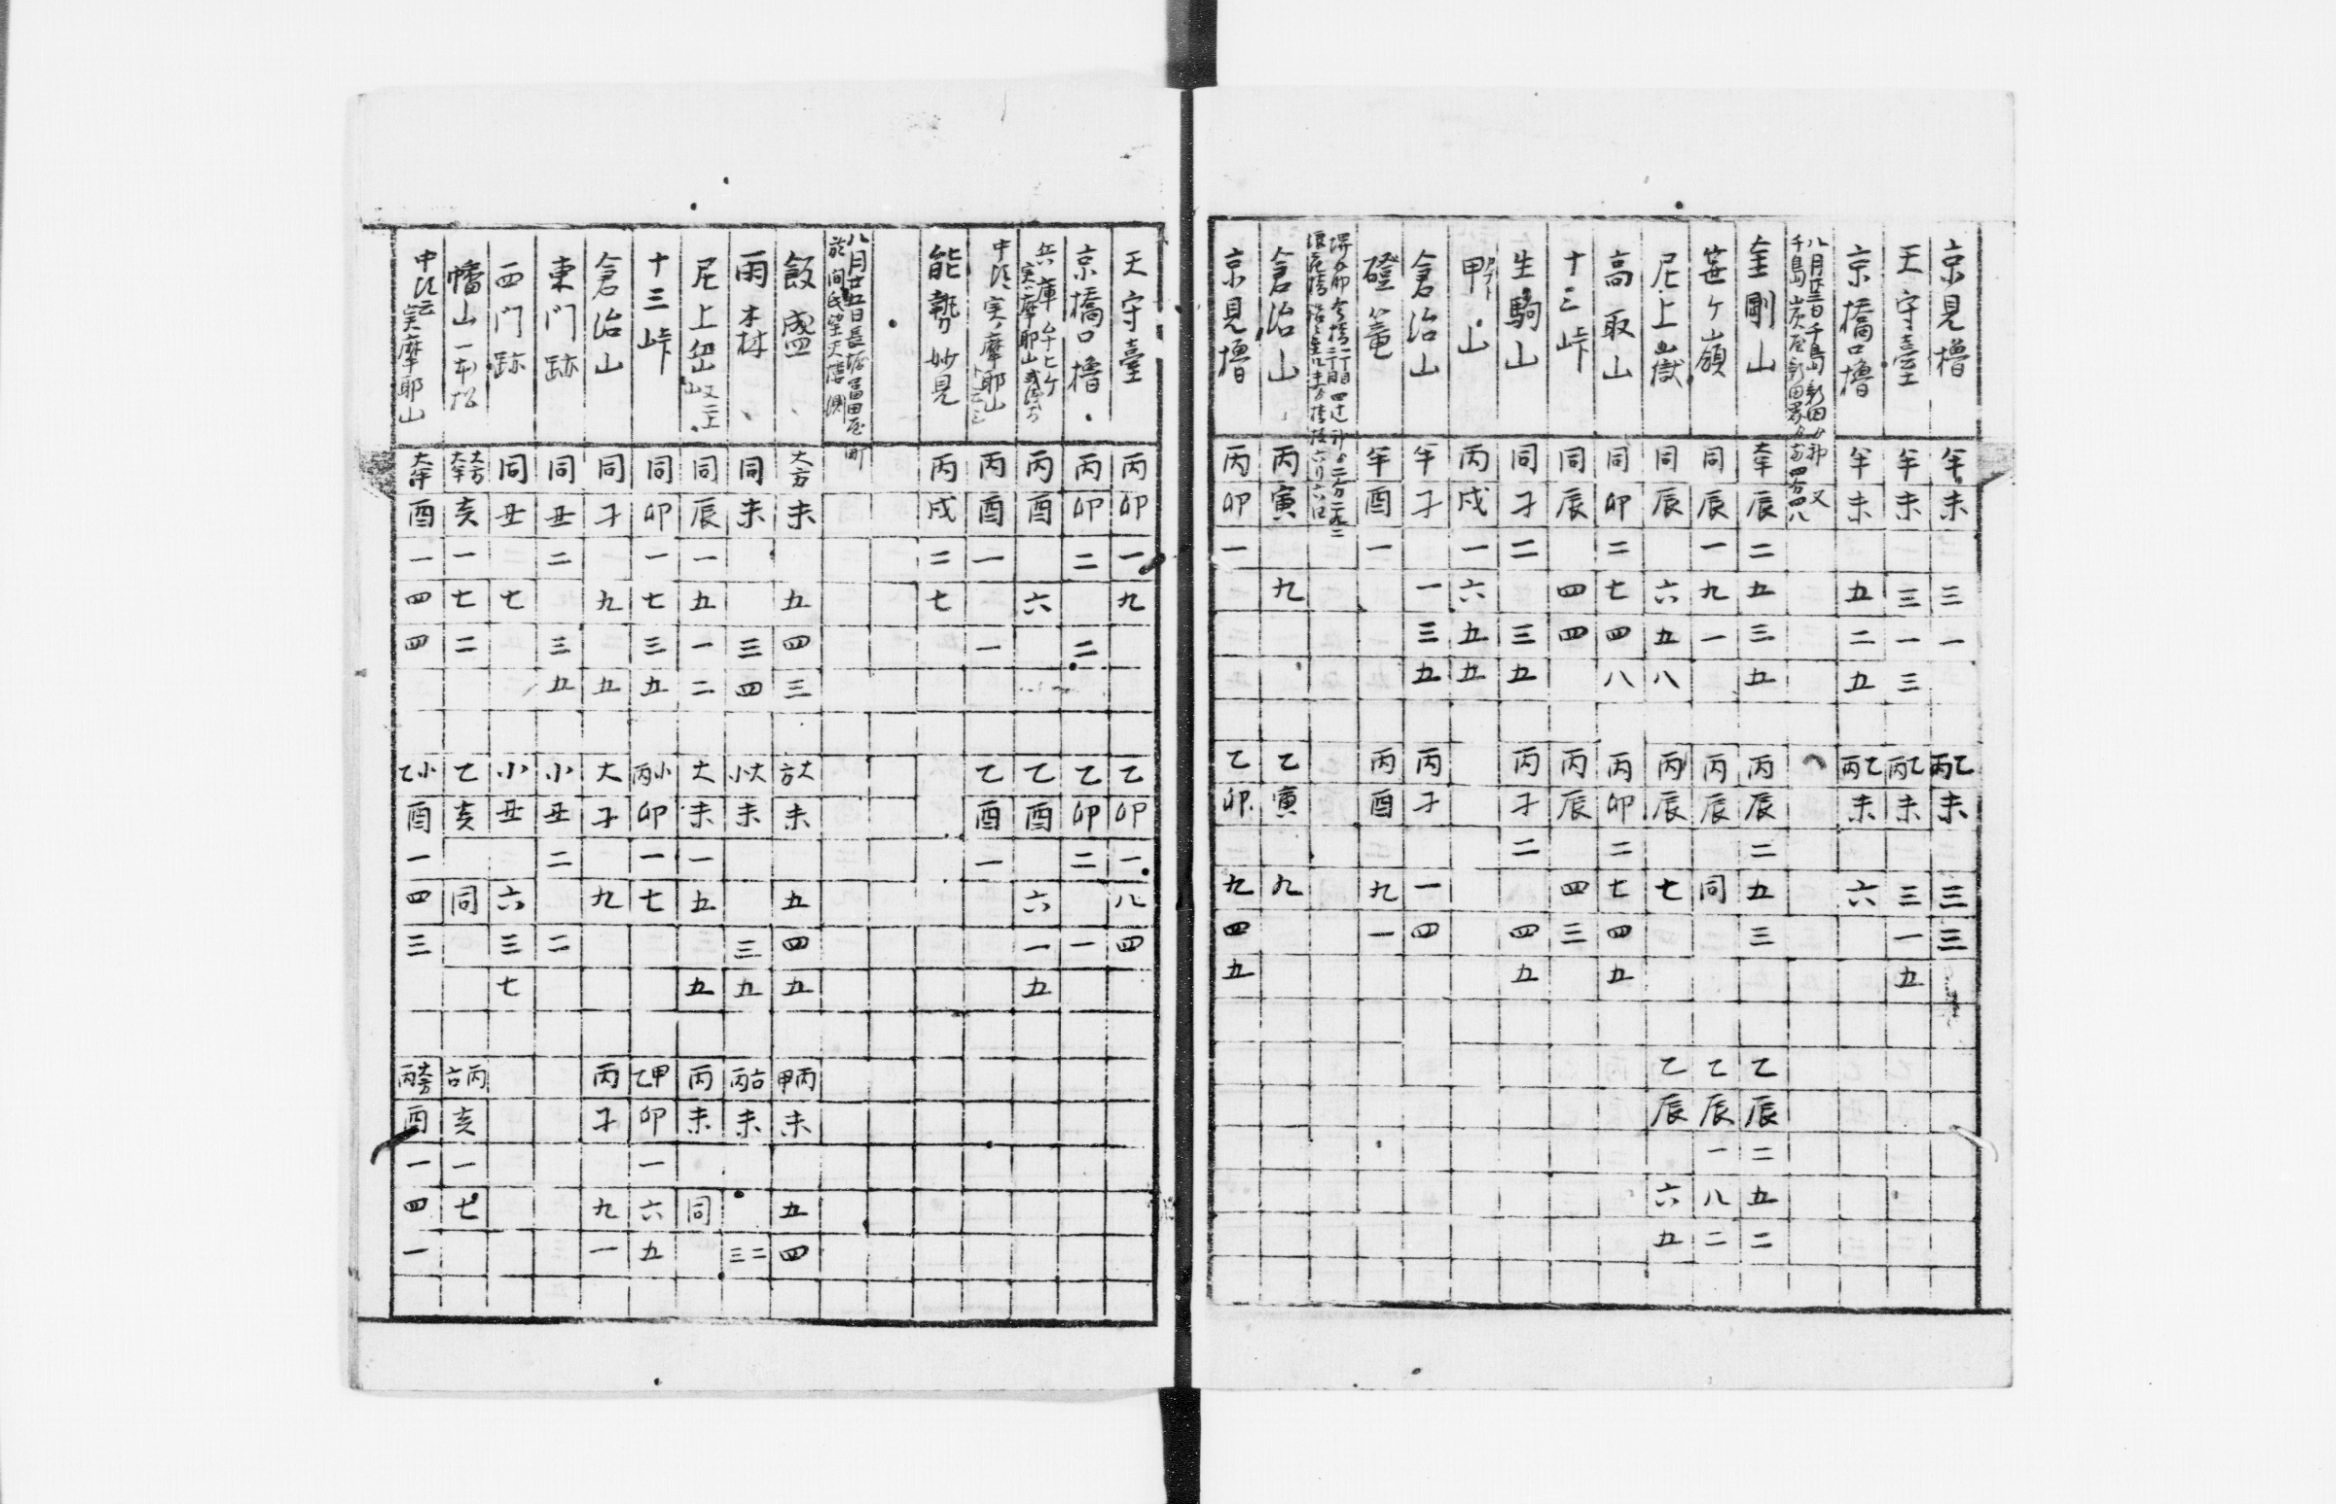 京見櫓 半未 三一 乙丙未 三三
天守臺 半未 三一三 乙丙未 三一五
京橋口櫓 半未 五二五 乙丙未 六
八月廿三日千島新田 又
千島炭屋新田 四方四八
金剛山 半辰 二五三五 丙辰 二五三 乙辰 二五二
笹ケ嶺 同辰 一九一 丙辰 同 乙辰 一八二
尼上嶽 同辰 六五八 丙辰 七 乙辰 六五
高取山 同卯 二七四八 丙卯 二七四五
十三峠 同辰 四四 丙辰 四三
生駒山 同子 二三五 丙子 二四五
甲山 丙戌 一六五五
倉治山 半子 一三五 丙子 一四
磴篭 半酉 一 丙酉 九一
倉治山 丙寅 九 乙寅 九
京見櫓 丙卯 一 乙卯 九四五
天守臺 丙卯 一九 乙卯 一八四
京橋口櫓 丙卯 二二 乙卯 二一
兵庫 実ハ摩耶山 丙酉 六 乙酉 六一五
中 実ハ摩耶山 丙酉 一一 乙酉 一
能勢妙見 丙戌 二七
八月廿五日長堀冨田屋町
於間氏望天樓測
飯盛 大方未 五四三 大方未 五四五 丙甲未 五四
雨木林 同未 三四 大小未 三五 古丙未 二三
尼上岳 同辰 一五一二 大未 一五五 丙未 同
十三峠 同卯 一七三五 小丙卯 一七 甲乙卯 一六五
倉治山 同子 九五 大子 九 丙子 九一
東門跡 同丑 二三五 小丑 二二
西門跡 同丑 七 小丑 六三七
幡山一本松 大方大半亥 一七二 乙亥 同 丙古亥 一七
中 実摩耶山 大半酉 一四四 小乙酉 一四三 大方丙酉 一四一